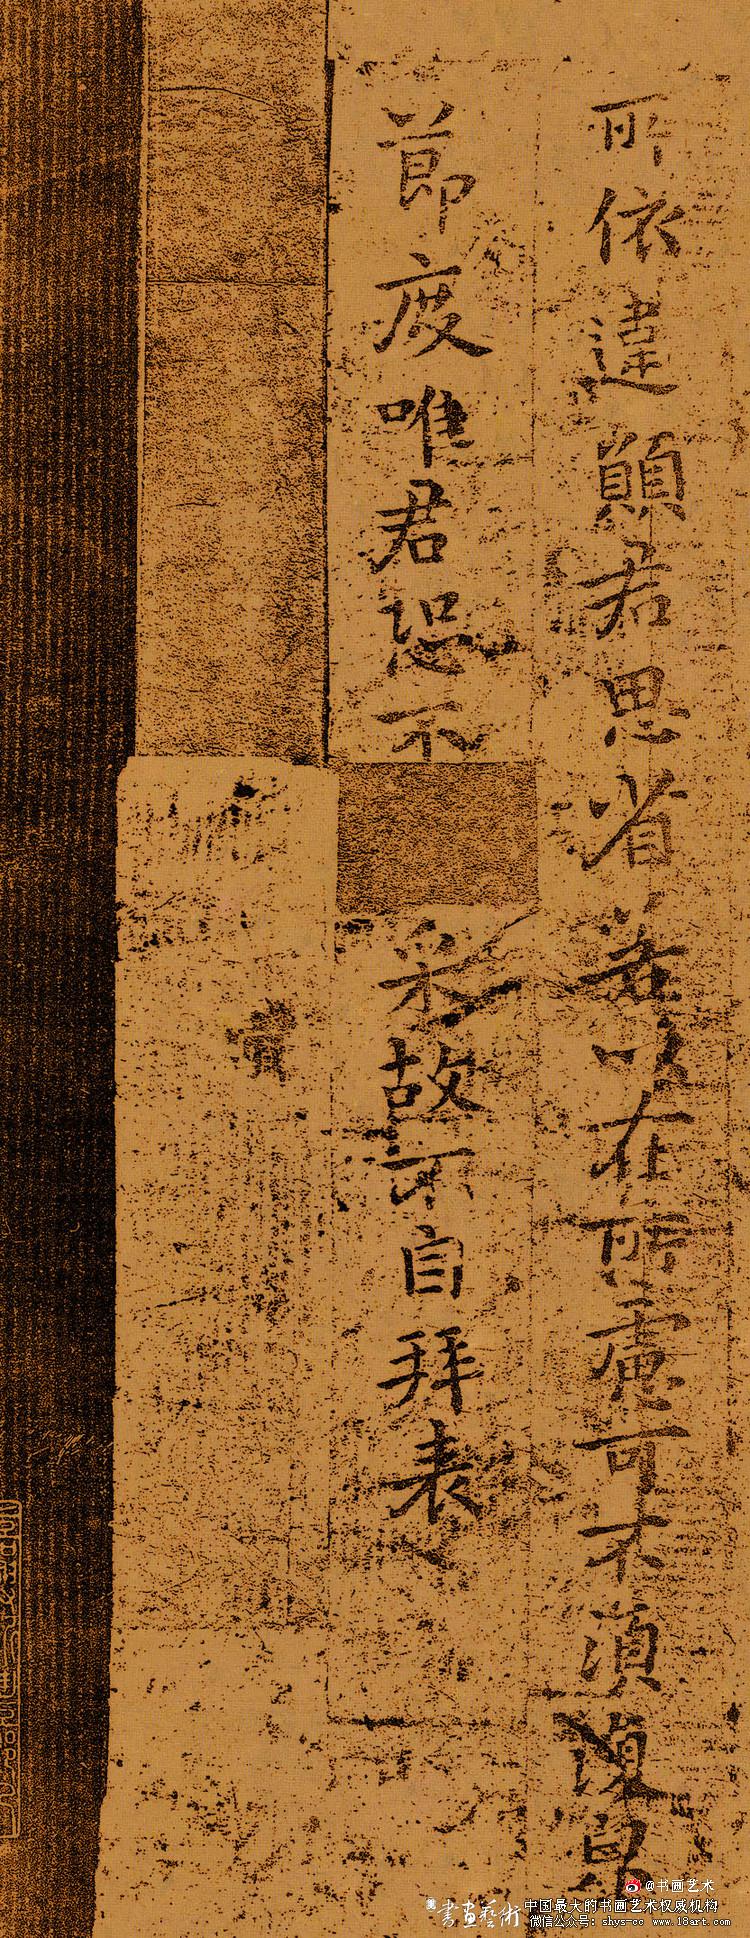 所依違願君思省若以在所慮可不須復皃
節度唯君恐不采故不自拜表
@书画艺术
書畫藝術
中国最大的书画艺术权威机构
微信公众号: shys-cc www.18art.com